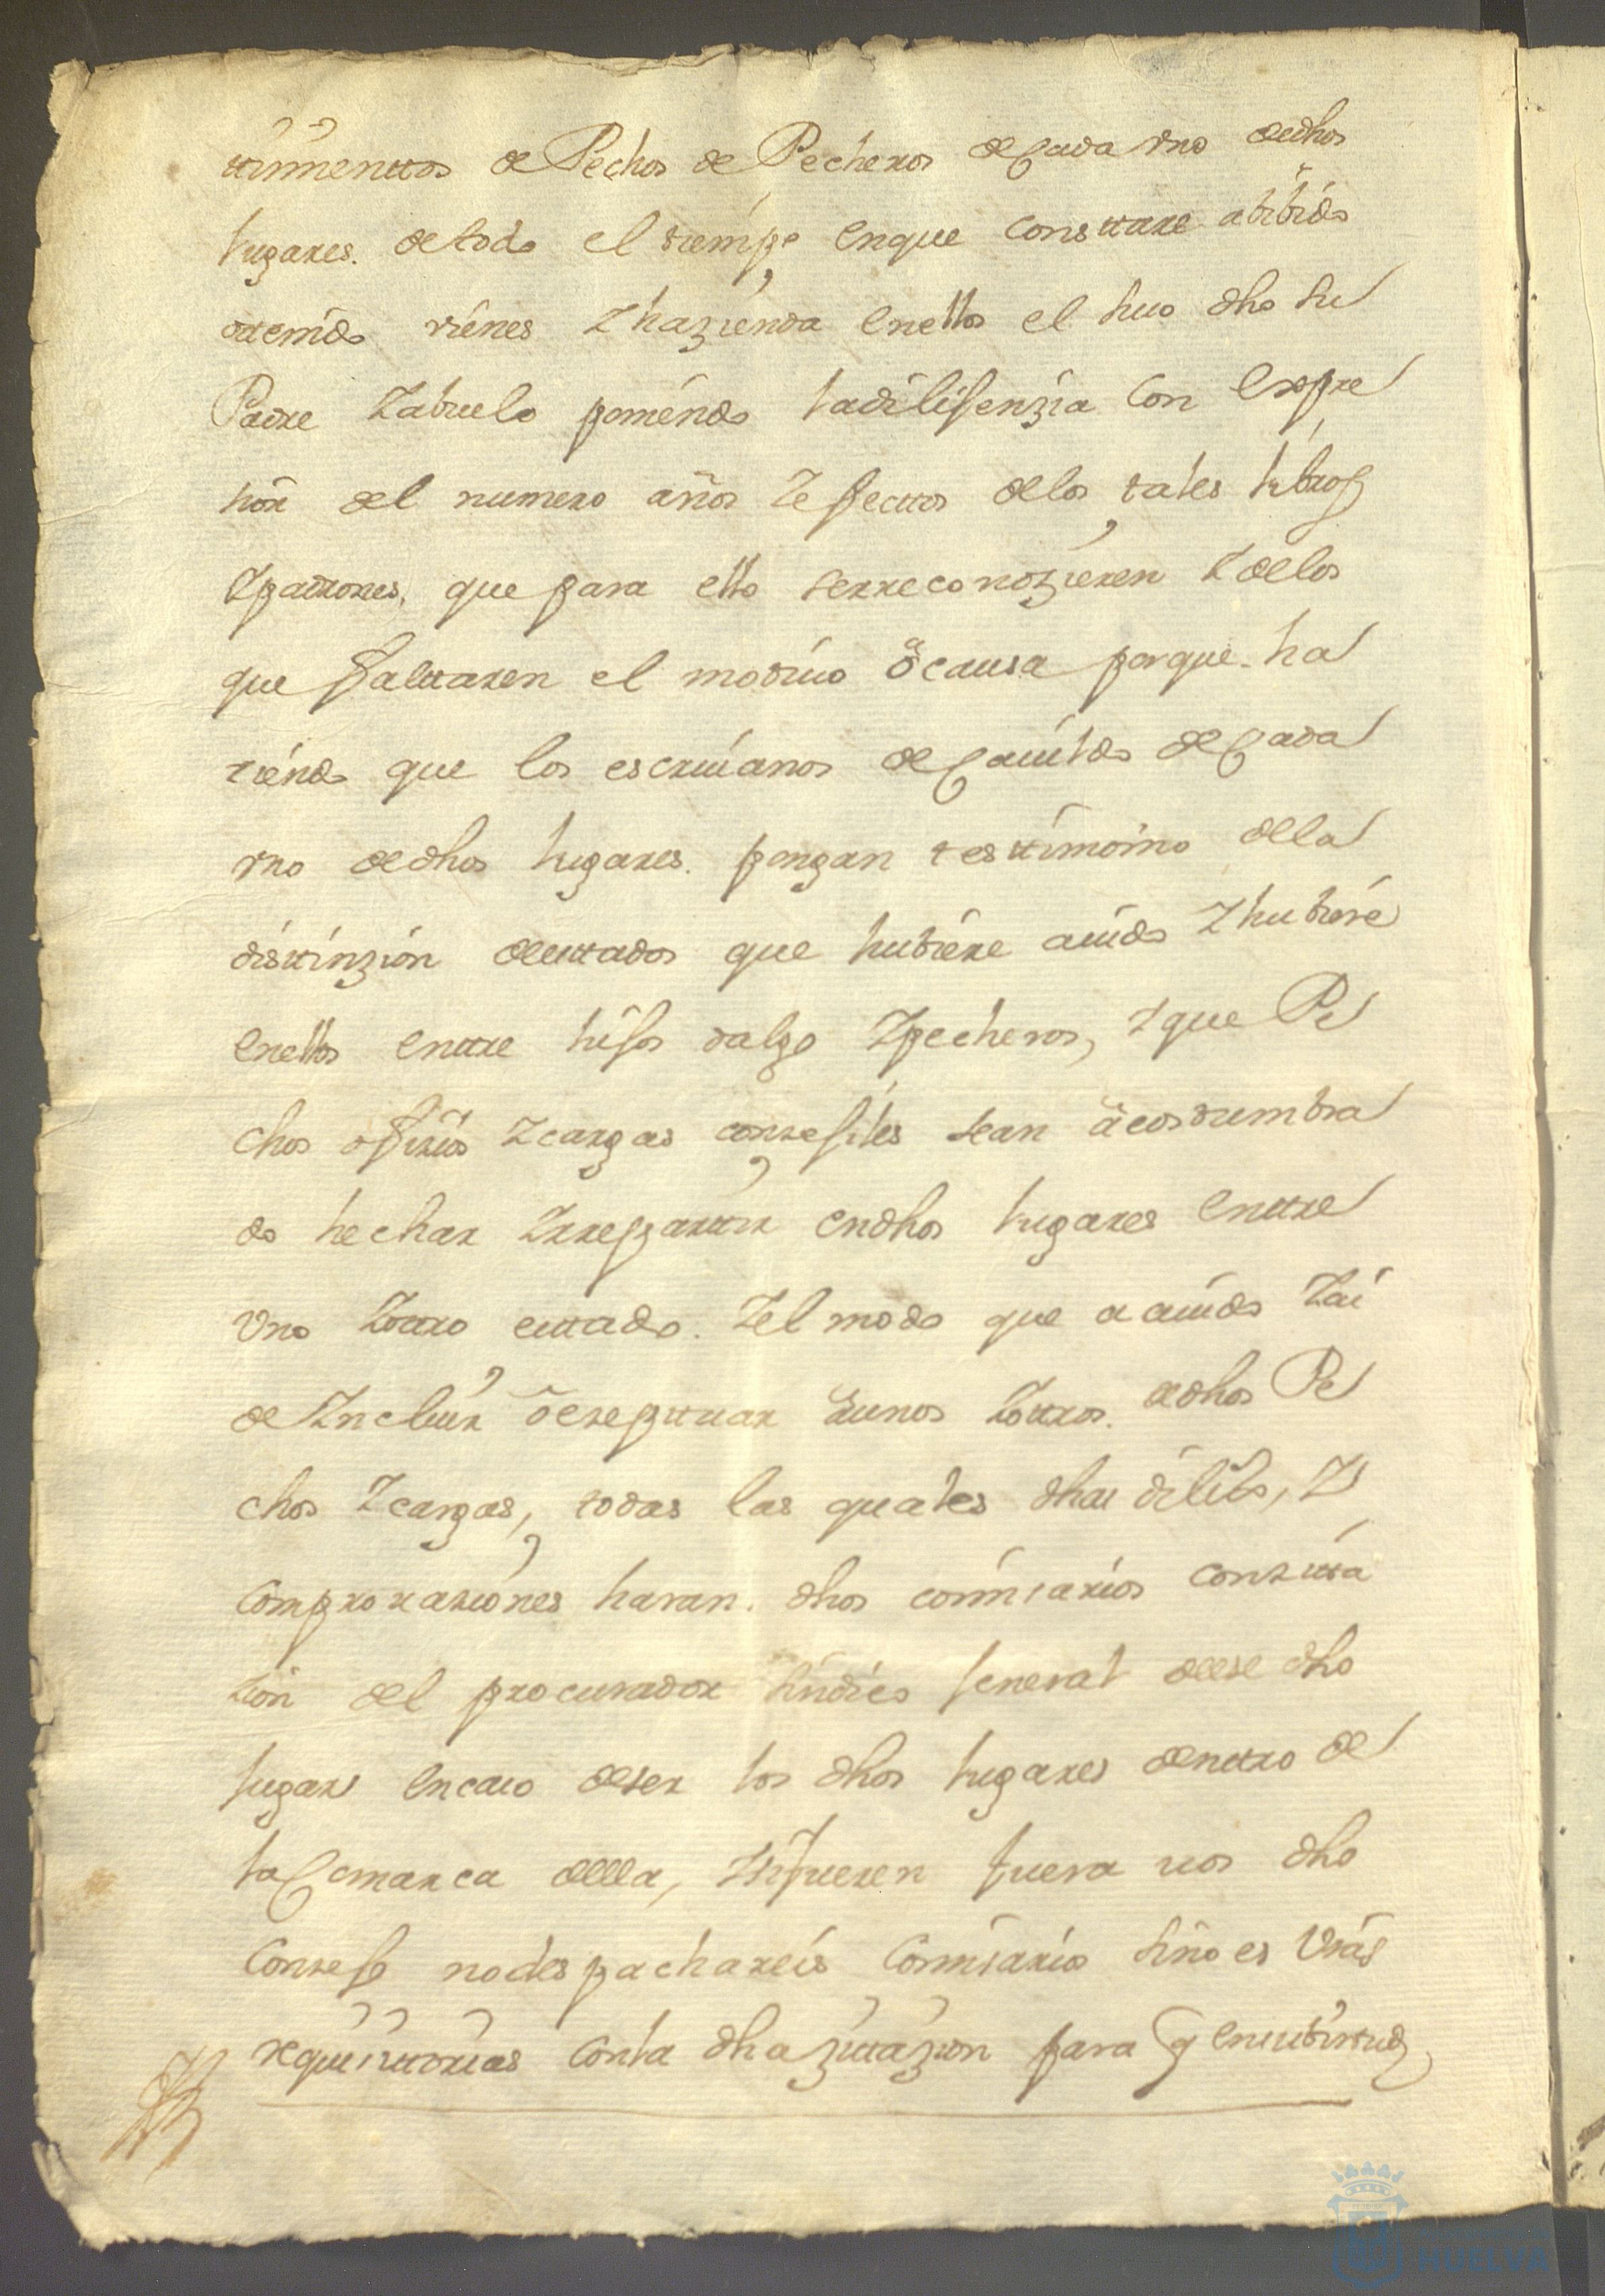 timienttos de Pechos de Pecheros de Cada vno dedhos
lugares. detodo el tiempo enque Consttare abibido
ottenido vienes Y hazienda enellos el suo dho su
Padre Yabuelo poniendo ladilijenzia Con Expre
sion del numero años Yefecttos delos tales libros
Ypadrones, que para ello serreconozieren Ydelos
que faltaren el motiuo ò causa porque. ha
ziendo que los escriuanos de Cauildo de Cada
vno dedhos lugares. pongan testtimonio dela
disttinzion deesttados que hubiere auido Yhubiere
enellos enttre hijos dalgo Ypecheros, Yque Pe
chos ofizios Ycargas conzejiles sean acostumbra
do hechar Yrreparttir endhos lugares enttre
Vno Yottro esttado. Yel modo que a auido Yai
de Yncluir òexepttuar Aunos Yottros. dedhos Pe
chos Ycargas, todas las quales dhas dilixs, Y
Comprovaziones haran. dhos comisarios conzitta
zion del procurador sindico Jeneral deese dho
lugar encaso deser los dhos lugares denttro de
la Comarca della, Ysifueren fuera uos dho
Conzejo nodespachareis Comisario sino es Vras
requisittorias Conla dha zittazion para q enuubirttud